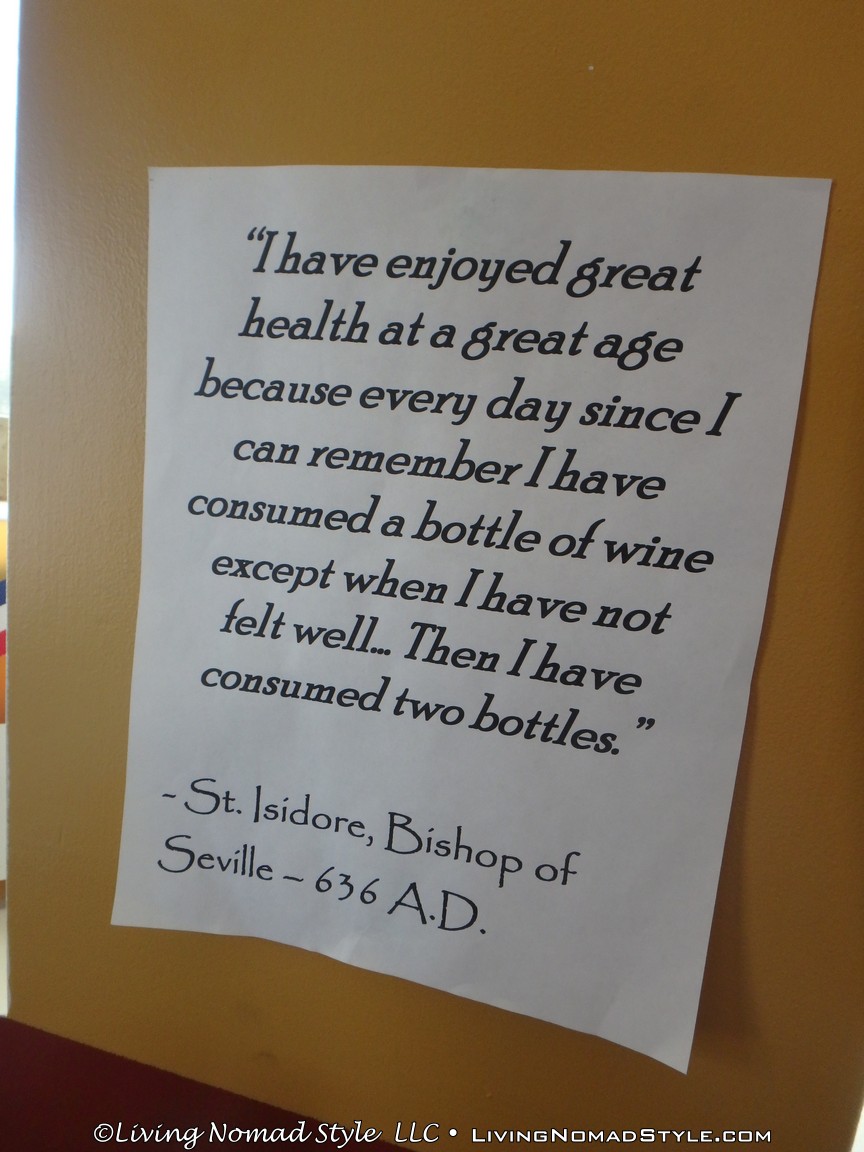 “I have enjoyed great
health at a great age
because every day since I
can remember I have
consumed a bottle of wine
except when I have not
felt well... Then I have
consumed two bottles.”
- St. Isidore, Bishop of
Seville – 636 A.D.
©Living Nomad Style LLC • LivingNomadStyle.com